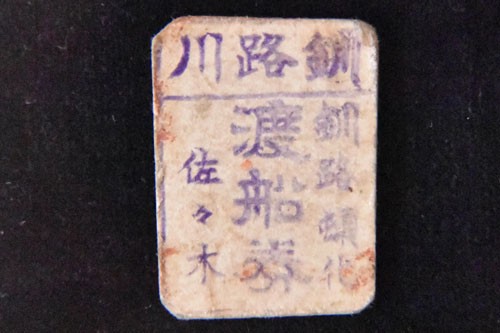 釧路川
釧路頓化
渡船券
佐々木